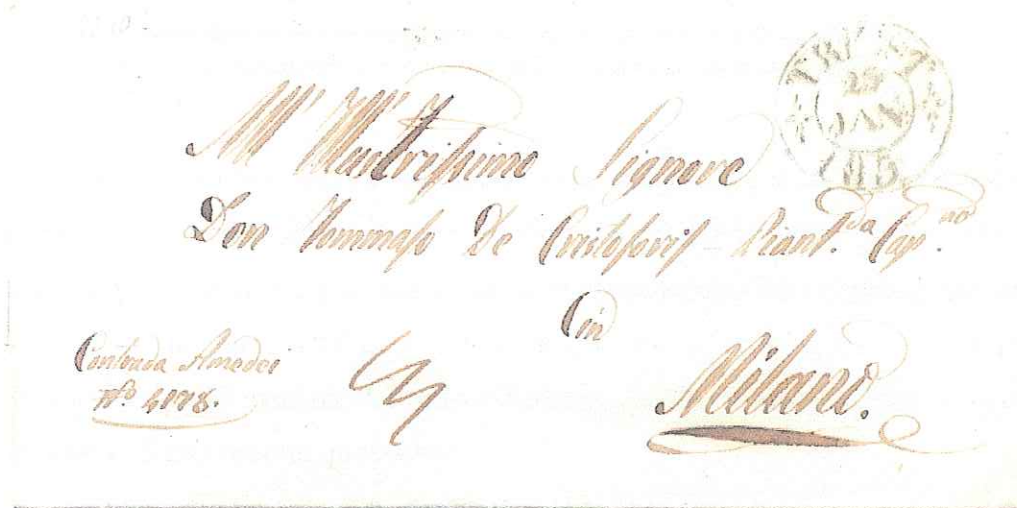 TRIEST
29
JAN
185
All' Illustrissimo Signore
Don Tommaso De Cristoforis Cap.no
in
Milano.
Contrada Amedei
No 4178.